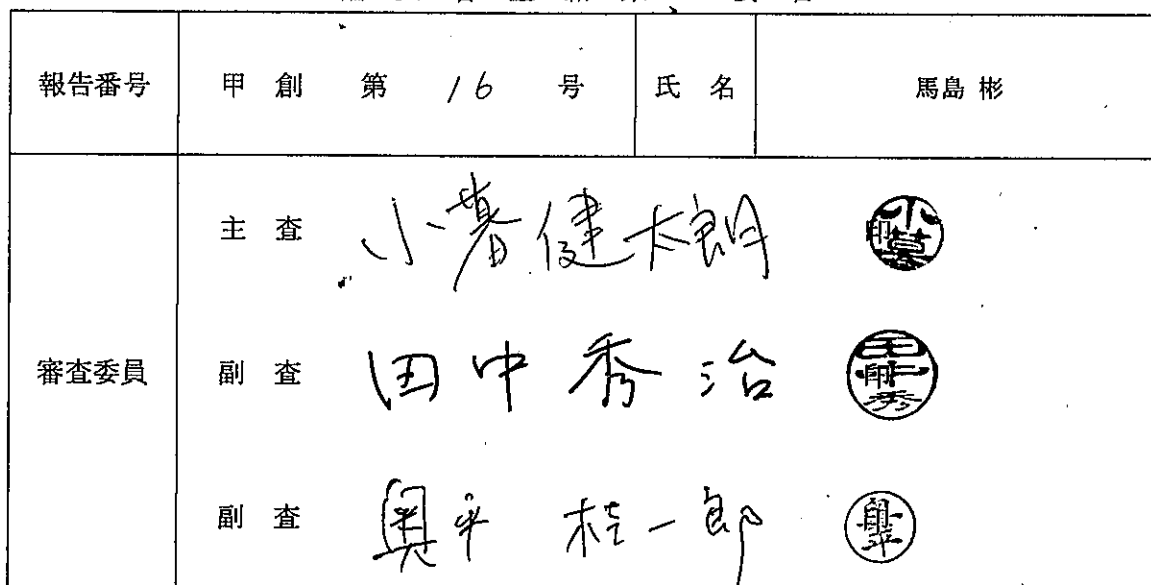 報告番号 甲 創 第 16 号 氏 名 馬島 彬
審査委員
主 査 小暮健太朗
副 査 田中秀治
副 査 奥平 桂一郎